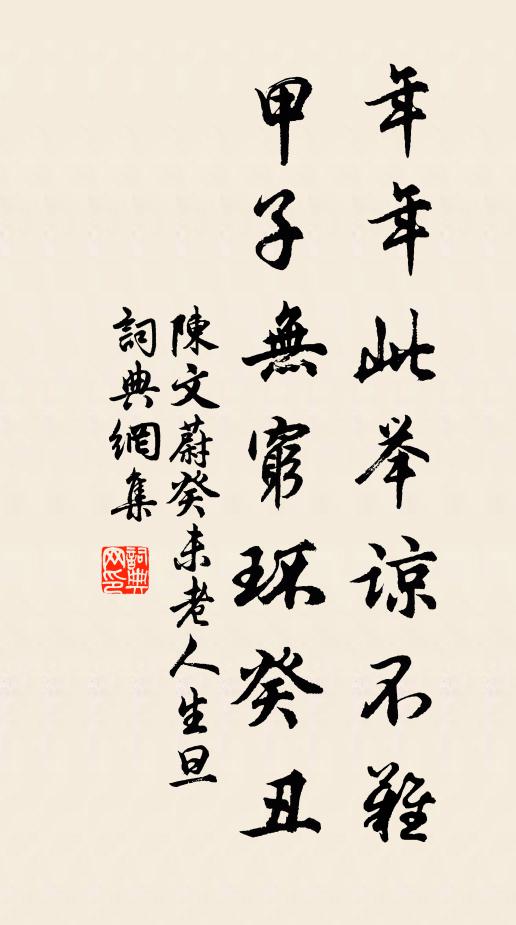 年年此举谅不難
甲子無窮环癸丑
陳文蔚癸未老人生旦
詞典網集
詞典网印